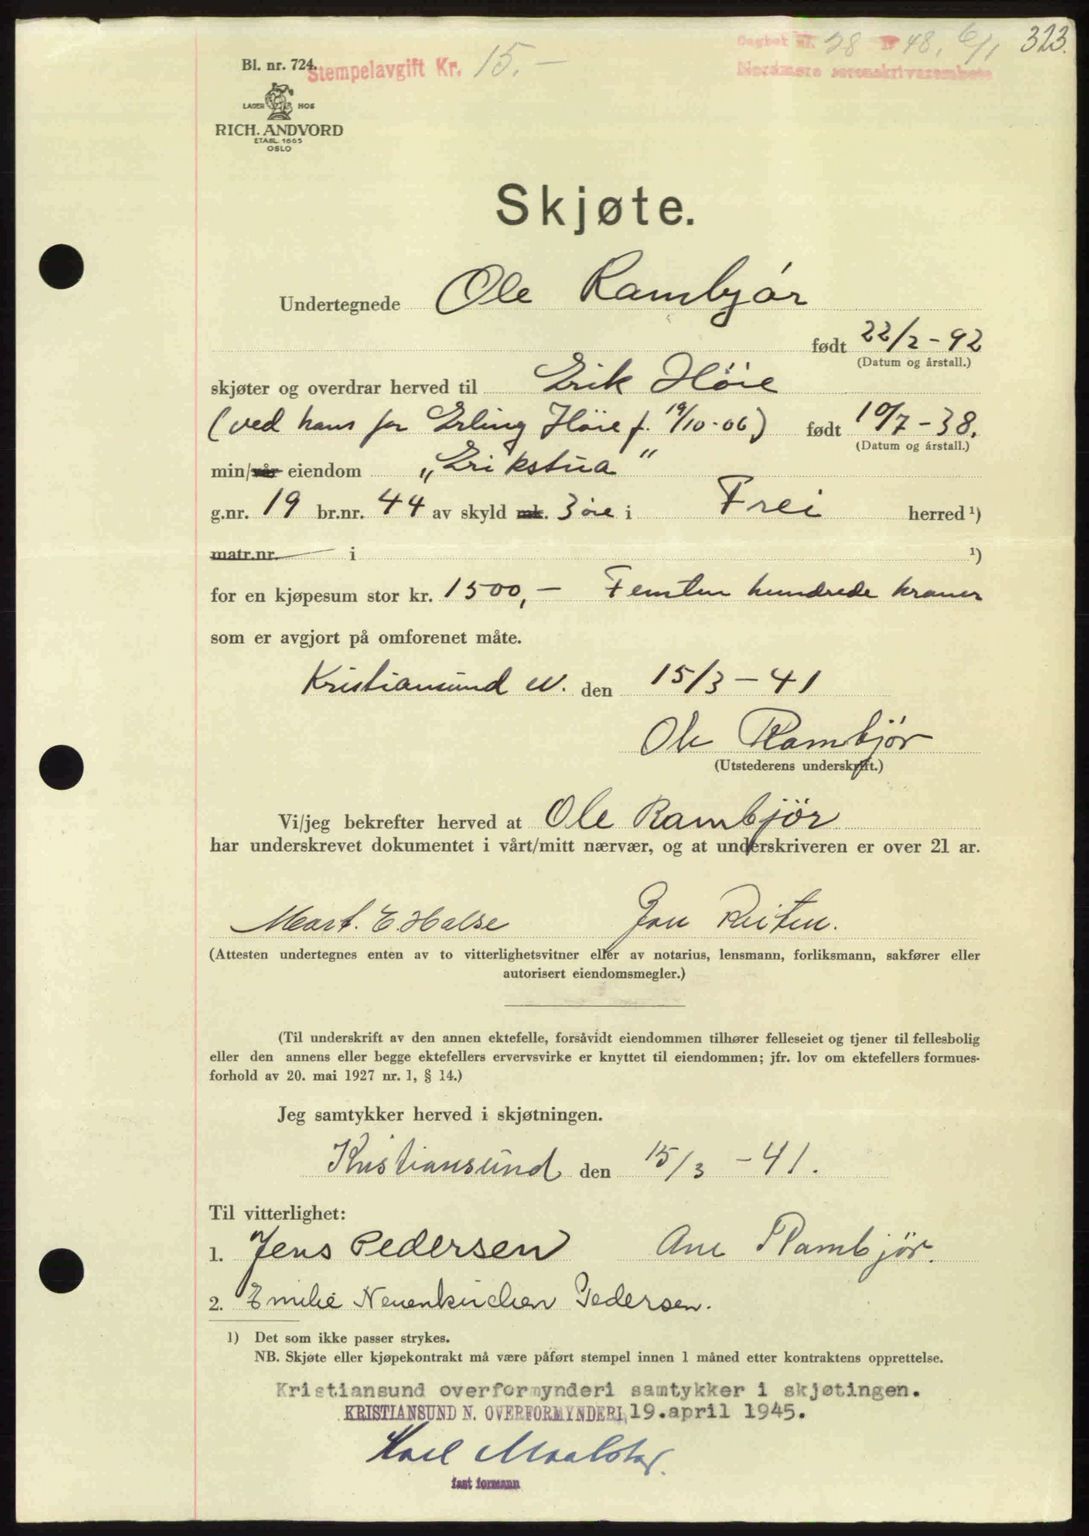 Dagbok nr. 28 19 48, 6/1 323.
Nordmøre sorenskriverembete
Bl. nr. 724.
Stempelavgift Kr. 15.-
LAGER HOS
RICH. ANDVORD
ETABL. 1865
OSLO
Skjøte.
Undertegnede Ole Rambjør
født 22/2-92
(Datum og årstall.)
skjøter og overdrar herved til Erik Höie
(ved hans far Erling Höie f. 19/10-06) født 10/7-38.
(Datum og årstall.)
min/vår eiendom "Erikstua"
g.nr. 19 br.nr. 44 av skyld mk. 3 øre i Frei herred ¹)
matr.nr. i ¹)
for en kjøpesum stor kr. 1500,- Femten hundrede kroner
som er avgjort på omforenet måte.
Kristiansund N. den 15/3-41
Ole Rambjør
(Utstederens underskrift.)
Vi/jeg bekrefter herved at Ole Rambjör
har underskrevet dokumentet i vårt/mitt nærvær, og at underskriveren er over 21 år.
Mart. E. Halse Jon Reiten.
(Attesten undertegnes enten av to vitterlighetsvitner eller av notarius, lensmann, forliksmann, sakfører eller
autorisert eiendomsmegler.)
(Til underskrift av den annen ektefelle, forsåvidt eiendommen tilhører felleseiet og tjener til fellesbolig
eller den annens eller begge ektefellers ervervsvirke er knyttet til eiendommen; jfr. lov om ektefellers formues-
forhold av 20. mai 1927 nr. 1, § 14.)
Jeg samtykker herved i skjøtningen.
Kristiansund den 15/3-41.
Til vitterlighet:
1. Jens Pedersen Ane Rambjør.
2. Emilie Neuenkirchen Pedersen.
1) Det som ikke passer strykes.
NB. Skjøte eller kjøpekontrakt må være påført stempel innen 1 måned etter kontraktens opprettelse.
Kristiansund overformynderi samtykker i skjøtingen.
KRISTIANSUND N. OVERFORMYNDERI, 19.april 1945.
fast formann